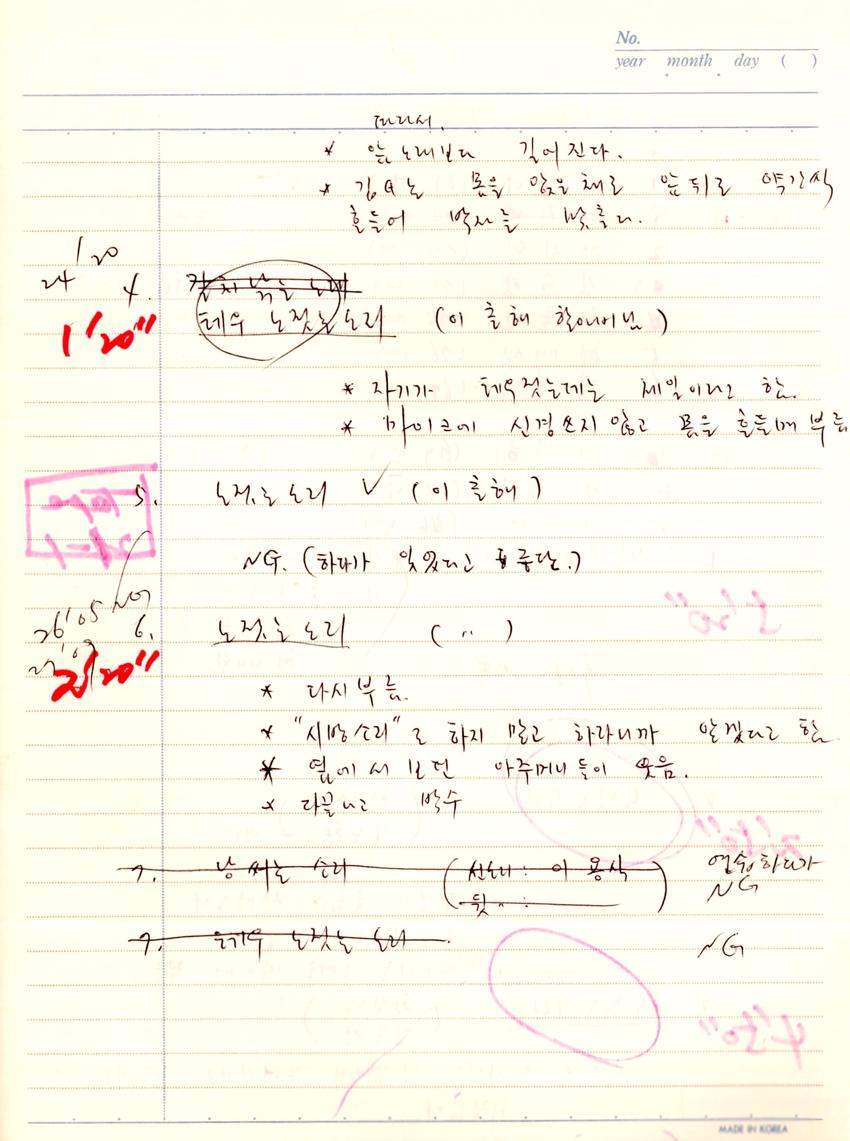 No.
year month day ( )
따라서.
* 앞 노래보다 길어진다.
* 몸을 앉은채로 앞뒤로 약간씩
흔들어 박자를 맞춘다.
1'20
24
4.
테우 노젓는 소리 (이출해 할아버님)
1'20"
* 자기가 테우젓는데는 제일이라고 함.
* 마이크에 신경쓰지 않고 몸을 흔들며 부름
5. 노젓는 소리 ✓ (이출해)
NG. (하다가 잊었다고 중단.)
26'05 NG
6. 노젓는 소리 ( " )
2'20"
* 다시 부름.
* "시방소리"로 하지 말고 하라니까 알겠다고 함
* 옆에서 보던 아주머니들이 웃음.
* 다끝나고 박수
7. 낭 써는 소리 (선소리: 이용식
뒷 " :
연습하다가
NG
7. 테우 노젓는 소리 NG
MADE IN KOREA